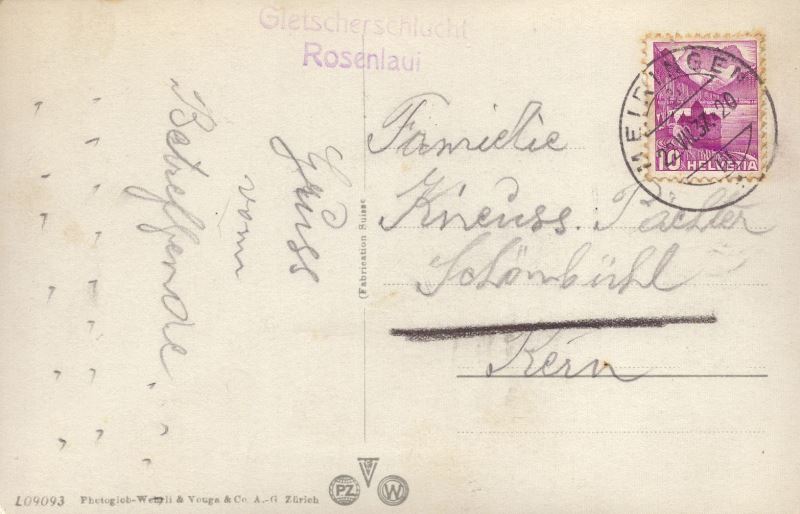 Gletscherschlucht
Rosenlaui
MEIRINGEN
10 HELVETIA
Familie
Kneuss. Pächter
Schönbühl
Kern
Gruss
vom
Betreffende
(Fabrication Suisse
PZ
W
L09093 Photoglob-Wehrli & Vouga & Co. A.-G. Zürich